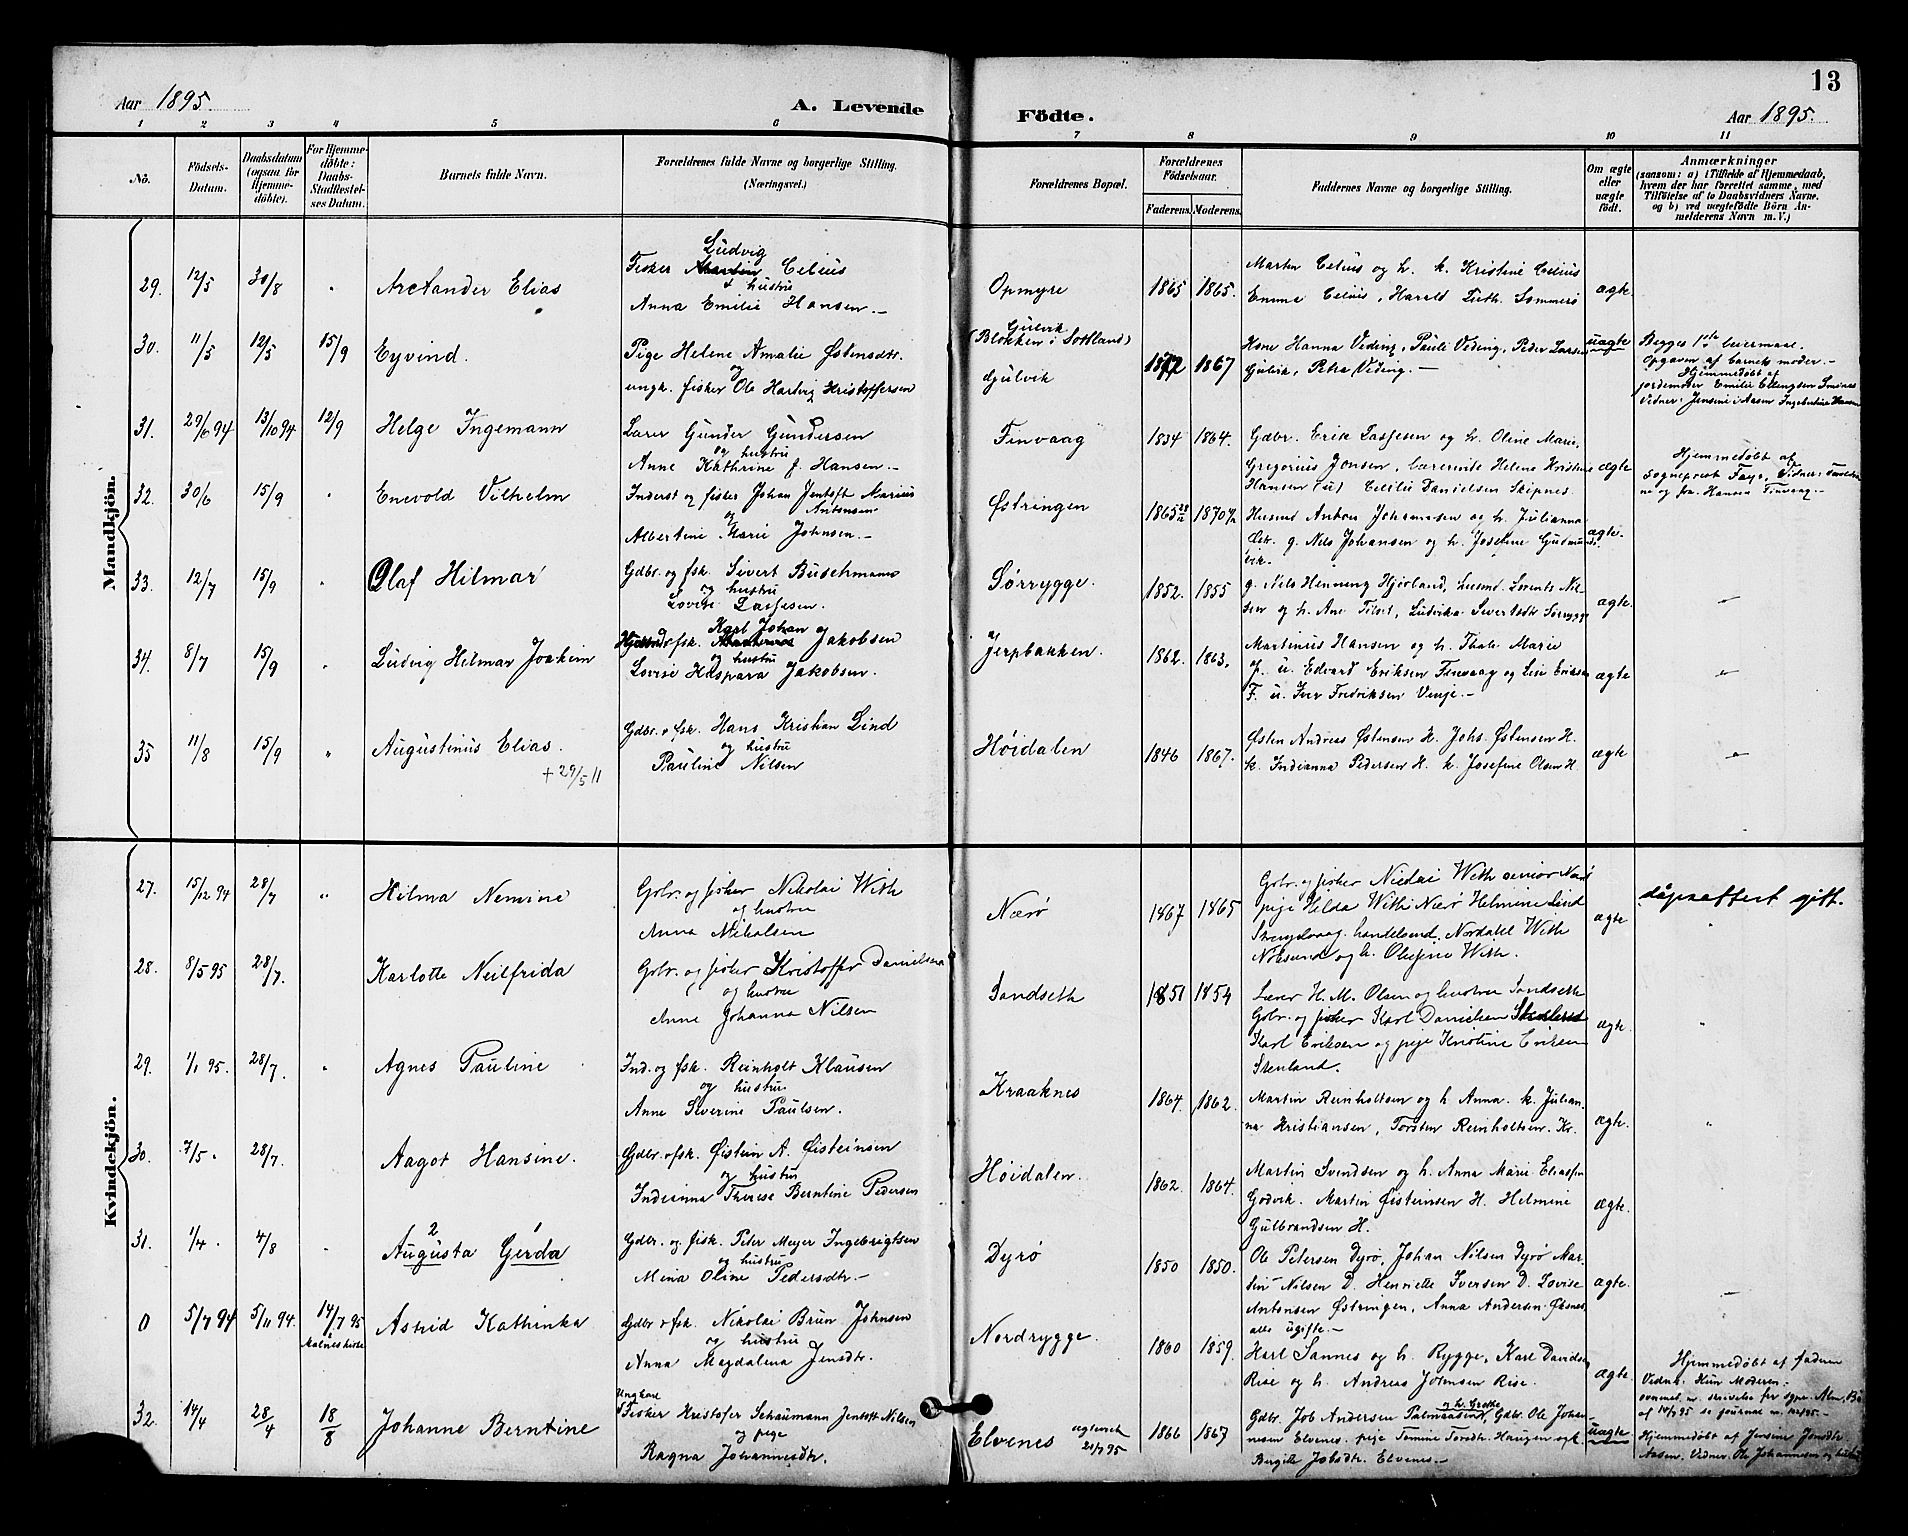 Aar 1895.
A. Levende Födte.
Aar 1895.
13
1 2 3 4 5 6 7 8 9 10 11
No.
Födsels-Datum.
Daabsdatum (ogsaa for Hjemme-döbte).
For Hjemme-döbte: Daabs-Stadfæstel-ses Datum.
Barnets fulde Navn.
Forældrenes fulde Navne og borgerlige Stilling. (Næringsvei.)
Forældrenes Bopæl.
Forældrenes Födselsaar.
Faderens. Moderens.
Faddernes Navne og borgerlige Stilling.
Om ægte eller uægte födt.
Anmærkninger
(saasom: a) i Tilfælde af Hjemmedaab,
hvem der har forrettet samme, med
Tilföielse af to Daabsvidners Navne.
og b) ved uægtefödte Börn An-
melderens Navn m. V.)
Mandkjön.
29. 12/5 30/8 " Arctander Elias
Fisker Ludvig Celius
& hustru
Anna Emilie Hansen.—
Opmyre 1865 1865.
Martin Celius og h. k. Kristine Celius
Emma Celius, Harald Sommerö
ægte.
30. 11/5 12/5 15/9 Eyvind.
Pige Helene Amalie Østensdtr.
og
ungk. fisker Ole Hartvig Kristoffersen
Gulvik
(Blokken i Sortland)
Gulvik 1872 1867
Hanna Veding, Pauli Veding, Peder Larsen
Gulvik, Petra Veding.—
uægte
Begges 1ste leiermaal.
Opgaver af barnets moder.—
Hjemmedøbt af
jordemoder Emilie Ellingsen
Vidner: Jensine i Aasen Ingebertine Hansen
31. 29/6 94 13/10 94 12/9 Helge Ingemann
Lærer Gunder Gundersen
og hustru
Anne Kathrine f. Hansen.—
Finvaag 1834 1864.
Gdbr. Erik Lassesen og h. Oline Marie,
Gregorius Jonsen, lærerinde Helene Kristine
Hansen (u) Cecilie Danielsen Skipnes.
ægte
Hjemmedøbt af
sogneprest Faye, Vidner:
og fru Hansen Finvaag.—
32. 30/6 15/9 " Enevold Vilhelm
Inderst og fisker Johan Jentoft Marius
og Antonsen
Albertine Marie Johnsen.—
Østringen 1865 1870
Husmd Anton Johannesen og h. Julianna
Østr. g. Nils Johansen og h. Josefine Gudmunds-
eik.
ægte.
33. 12/7 15/9 " Olaf Hilmar
Gdbr. og fsk. Sivert Buschmann
og hustru
Lovise Lassesen.
Sørrygge. 1852. 1855
g. Nils Henning Hjørland, husmd Lorents Nil-
sen og h. Ane Tilset, Ludvika Sivertsdtr Sørrygge
ægte.
—
34. 8/7 15/9 " Ludvig Hilmar Joakim
fsk. Karl Johan Jakobsen
og hustru
Lovise Kaspara Jakobsen.
Jerpbakken. 1862. 1863.
Martinus Hansen og h. Thale Marie
J. u. Edvard Eriksen Finvaag og Lise Eriksen
F. u. Iver Fredriksen Vinje.—
ægte
—
35 11/8 15/9 " Augustinus Elias.
+ 29/5 11
Gdbr. o fsk. Hans Kristian Lind
og hustru
Pauline Nilsen
Høidalen 1846 1867.
Østen Andreas Østensen H. Johs. Østensen H.
k. Indianna Pedersen H. k. Josefine Olsen H.
ægte
—
Kvindekjön.
27. 15/12 94 28/7 " Hilma Nemine
Gbr. og fisker Nikolai With
og hustru
Anna Nikolsen
Nærö 1867 1865
Gbr. og fisker Nicolai With senior Nærö
pige Hilda With Nærö Helmine Lind
Strengelvaag. handelsmd. Nordahl With
og h. Olufine With.
ægte
dåpsattest gitt.
28. 8/5 95 28/7. Karlotte Neilfrida
Gbr. og fisker Kristoffer Danielsen
og hustru
Anne Johanna Nilsen
Sandseth 1851 1854
Lærer H. M. Olsen og hustru Sandseth
Gbr. og fisker Karl Danielsen
Karl Eriksen og pige Kristine Eriksen
Stenland.
ægte
29. 1/1 95. 28/7. " Agnes Pauline
Ind. og fsk. Reinholt Klausen
og hustru
Anne Severine Paulsen.
Kraaknes 1864. 1862.
Martin Reinholtsen og h Anna. k. Julian-
na Kristiansen, Torsten Reinholtsen. Kr.
ægte.
30. 7/5 " 28/7. Aagot Hansine.
Gdbr. o fsk. Øistein A. Øisteinsen
og hustru
Indianna Therese Berntine Pedersen
Høidalen. 1862. 1864.
Martin Svendsen og h. Anna Marie Eliassen
Godvik. Martin Øisteinsen H. Helmine
Gulbrandsen H.
ægte.
31. 1/4 . 4/8 . Augusta Gerda
2 1
Gdbr. og fisk. Peter Meyer Ingebrigtsen
og hustru
Mina Oline Pedersdtr.—
Dyrø 1850 1850.
Ole Petersen Dyrø, Johan Nilsen Dyrø Mar-
tin Nilsen D. Henriette Iversen D. Lovise
Antonsen Østringen, Anna Andersen Øksnes,
alle ugifte.—
ægte.
—
0 5/7 94 5/11 94. 14/7 95 Malnes kirke Astrid Kathinka
Gdbr o fsk. Nikolai Brun Johnsen
og hustru
Anna Magdalena Jensdtr.
Nordrygge. 1860 1859.
Karl Sannes og h. Rygge, Karl Davidsen
Rise og h. Andreas Johnsen Rise.
ægte.
Hjemmedøbt af faderen
Vidner. Hun Moderen.
af 10/7 95 se journal
32. 14/4 28/4 18/8 Johanne Berntine
Ungkarl
Fisker Kristofer Schaumann Jentoft Nilsen
og pige
Ragna Johannesdtr.
Elvenes 21/9 95 1866 1867
og h. Grethe
Gdbr. Job Andersen Palmaasund, Gdbr. Ole Johan-
nesen Elvenes. pige Tomine Tordtr. Haugen og k.
Bergitte Jobsdtr. Elvenes.—
uægte
Hjemmedøbt af Jensine Jonsdtr
Aasen. Vidner. Ole Johannesen og hustru